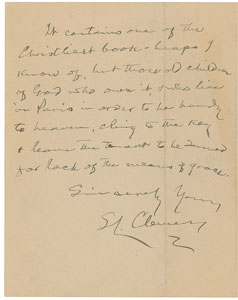 It contains one of the
Christliest book-heaps I
know of, but those old children
of God who own it, & who live
in Paris in order to be handy
to heaven, cling to the key
& leave the tenant to be damned
for lack of the means of grace.
Sincerely Yours
SL. Clemens